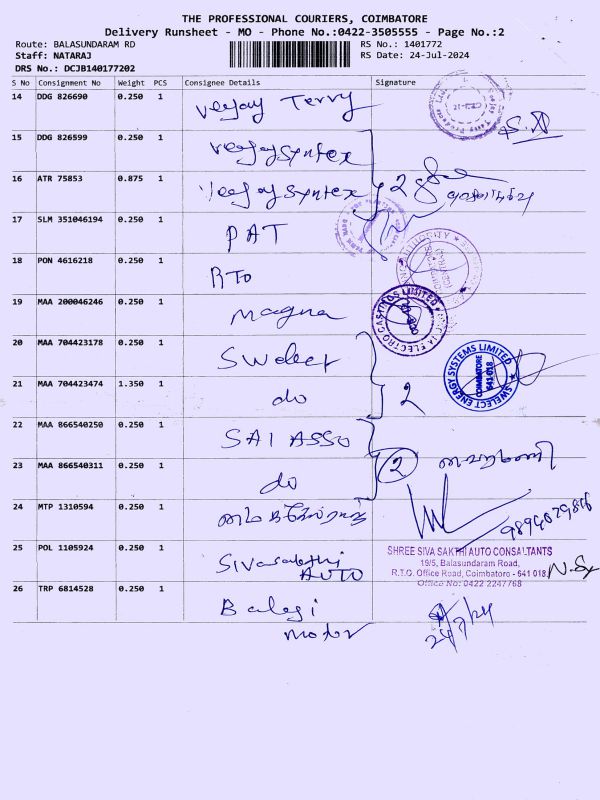 THE PROFESSIONAL COURIERS, COIMBATORE
Delivery Runsheet - MO - Phone No.:0422-3505555 - Page No.:2
Route: BALASUNDARAM RD
RS No.: 1401772
Staff: NATARAJ
RS Date: 24-Jul-2024
DRS No.: DCJB140177202
S No Consignment No Weight PCS Consignee Details Signature
14 DDG 826690 0.250 1 Veejay Terry
15 DDG 826599 0.250 1 Veejay syntex
16 ATR 75853 0.875 1 Veejay syntex 2
17 SLM 351046194 0.250 1 PAT
18 PON 4616218 0.250 1 RTO
19 MAA 200046246 0.250 1 magna
MAGNA ELECTRO CASTINGS LIMITED
20 MAA 704423178 0.250 1 Swelect
SWELECT ENERGY SYSTEMS LIMITED
COIMBATORE
641 018
21 MAA 704423474 1.350 1 do 2
22 MAA 866540250 0.250 1 SAI ASSO
23 MAA 866540311 0.250 1 do 2
24 MTP 1310594 0.250 1
25 POL 1105924 0.250 1 Sivasakthi
AUTO
SHREE SIVA SAKTHI AUTO CONSALTANTS
19/5, Balasundaram Road,
R.T.O. Office Road, Coimbatore - 641 018
Office No: 0422 2247768
26 TRP 6814528 0.250 1 Balaji
motor
24/7/24